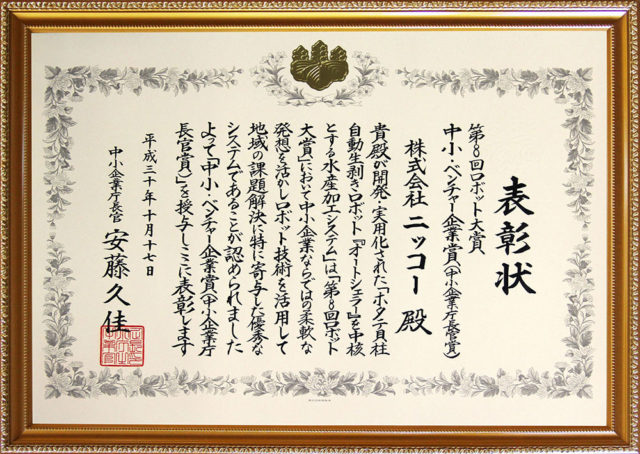 表彰状
第8回ロボット大賞
中小・ベンチャー企業賞(中小企業庁長官賞)
株式会社 ニッコー 殿
貴殿が開発・実用化された「ホタテ貝柱
自動生剥きロボット『オートシェラ』を中核
とする水産加工システム」は「第8回ロボット
大賞」において中小企業ならではの柔軟な
発想を活かしロボット技術を活用して
地域の課題解決に特に寄与した優秀な
システムであることが認められました
よって「中小・ベンチャー企業賞(中小企業庁
長官賞)」を授与しここに表彰します
平成三十年十月十七日
中小企業庁長官 安藤久佳